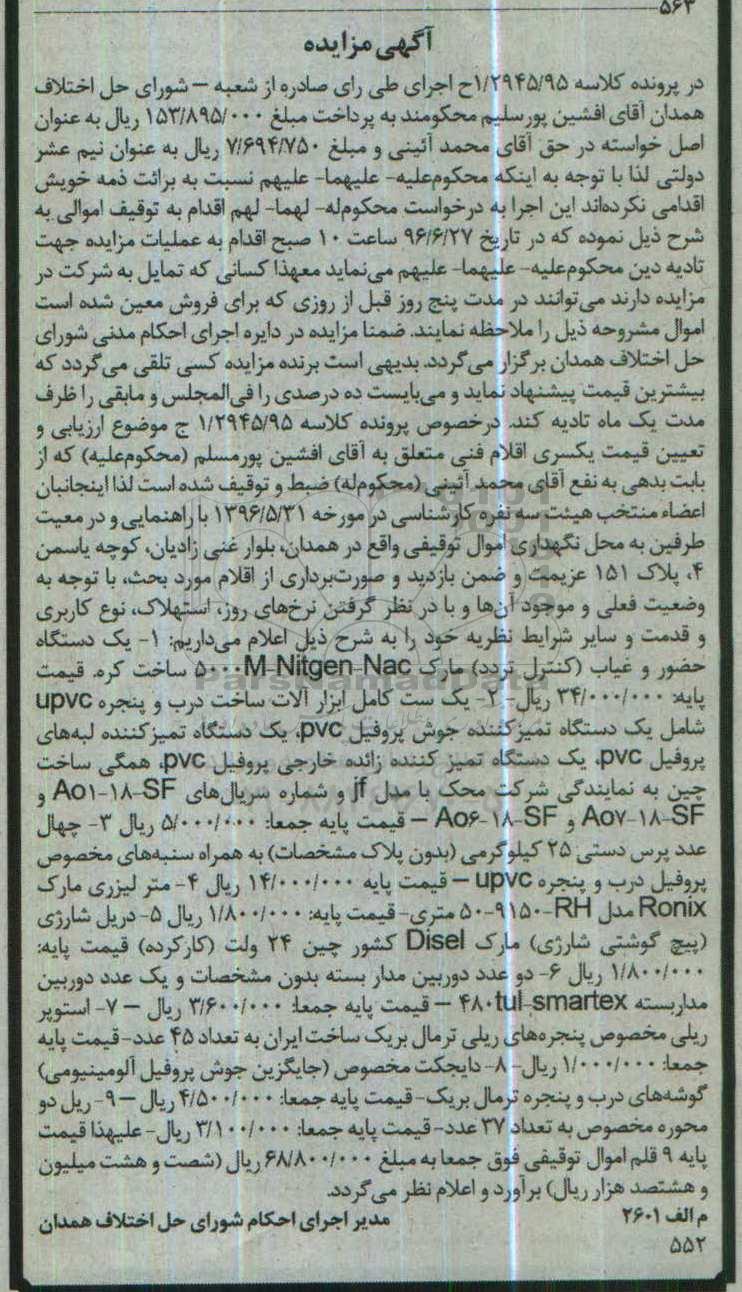 ۵۶۳
آگهی مزایده
در پرونده کلاسه ۱/۲۹۴۵/۹۵ح اجرای طی رای صادره از شعبه – شورای حل اختلاف
همدان آقای افشین پورسلیم محکومند به پرداخت مبلغ ۱۵۳/۸۹۵/۰۰۰ ریال به عنوان
اصل خواسته در حق آقای محمد آئینی و مبلغ ۷/۶۹۴/۷۵۰ ریال به عنوان نیم عشر
دولتی لذا با توجه به اینکه محکوم‌علیه- علیهما- علیهم نسبت به برائت ذمه خویش
اقدامی نکرده‌اند این اجرا به درخواست محکوم‌له- لهما- لهم اقدام به توقیف اموالی به
شرح ذیل نموده که در تاریخ ۹۶/۶/۲۷ ساعت ۱۰ صبح اقدام به عملیات مزایده جهت
تادیه دین محکوم‌علیه- علیهما- علیهم می‌نماید معهذا کسانی که تمایل به شرکت در
مزایده دارند می‌توانند در مدت پنج روز قبل از روزی که برای فروش معین شده است
اموال مشروحه ذیل را ملاحظه نمایند. ضمنا مزایده در دایره اجرای احکام مدنی شورای
حل اختلاف همدان برگزار می‌گردد. بدیهی است برنده مزایده کسی تلقی می‌گردد که
بیشترین قیمت پیشنهاد نماید و می‌بایست ده درصدی را فی‌المجلس و مابقی را ظرف
مدت یک ماه تادیه کند. درخصوص پرونده کلاسه ۱/۲۹۴۵/۹۵ ج موضوع ارزیابی و
تعیین قیمت یکسری اقلام فنی متعلق به آقای افشین پورمسلم (محکوم‌علیه) که از
بابت بدهی به نفع آقای محمد آئینی (محکوم‌له) ضبط و توقیف شده است لذا اینجانبان
اعضاء منتخب هیئت سه نفره کارشناسی در مورخه ۱۳۹۶/۵/۳۱ با راهنمایی و در معیت
طرفین به محل نگهداری اموال توقیفی واقع در همدان، بلوار غنی زادیان، کوچه یاسمن
۴، پلاک ۱۵۱ عزیمت و ضمن بازدید و صورت‌برداری از اقلام مورد بحث، با توجه به
وضعیت فعلی و موجود آن‌ها و با در نظر گرفتن نرخ‌های روز، استهلاک، نوع کاربری
و قدمت و سایر شرایط نظریه خود را به شرح ذیل اعلام می‌داریم: ۱- یک دستگاه
حضور و غیاب (کنترل تردد) مارک ۵۰۰۰M-Nitgen-Nac ساخت کره. قیمت
پایه: ۳۴/۰۰۰/۰۰۰ ریال- ۲- یک ست کامل ابزار آلات ساخت درب و پنجره upvc
شامل یک دستگاه تمیزکننده جوش پروفیل pvc، یک دستگاه تمیزکننده لبه‌های
پروفیل pvc، یک دستگاه تمیز کننده زائده خارجی پروفیل pvc، همگی ساخت
چین به نمایندگی شرکت محک با مدل jf و شماره سریال‌های Ao۱-۱۸-SF و
Ao۷-۱۸-SF و Ao۶-۱۸-SF – قیمت پایه جمعا: ۵/۰۰۰/۰۰۰ ریال ۳- چهال
عدد پرس دستی ۲۵ کیلوگرمی (بدون پلاک مشخصات) به همراه سنبه‌های مخصوص
پروفیل درب و پنجره upvc – قیمت پایه ۱۴/۰۰۰/۰۰۰ ریال ۴- متر لیزری مارک
Ronix مدل RH-۹۱۵۰-۵۰ متری- قیمت پایه: ۱/۸۰۰/۰۰۰ ریال ۵- دریل شارژی
(پیچ گوشتی شارژی) مارک Disel کشور چین ۲۴ ولت (کارکرده) قیمت پایه:
۱/۸۰۰/۰۰۰ ریال ۶- دو عدد دوربین مدار بسته بدون مشخصات و یک عدد دوربین
مداربسته ۴۸۰tul-smartex – قیمت پایه جمعا: ۳/۶۰۰/۰۰۰ ریال – ۷- استوپر
ریلی مخصوص پنجره‌های ریلی ترمال بریک ساخت ایران به تعداد ۴۵ عدد- قیمت پایه
جمعا: ۱/۰۰۰/۰۰۰ ریال- ۸- دایجکت مخصوص (جایگزین جوش پروفیل آلومینیومی)
گوشه‌های درب و پنجره ترمال بریک- قیمت پایه جمعا: ۴/۵۰۰/۰۰۰ ریال – ۹- ریل دو
محوره مخصوص به تعداد ۳۷ عدد- قیمت پایه جمعا: ۳/۱۰۰/۰۰۰ ریال- علیهذا قیمت
پایه ۹ قلم اموال توقیفی فوق جمعا به مبلغ ۶۸/۸۰۰/۰۰۰ ریال (شصت و هشت میلیون
و هشتصد هزار ریال) برآورد و اعلام نظر می‌گردد.
م الف ۲۶۰۱ مدیر اجرای احکام شورای حل اختلاف همدان
۵۵۲